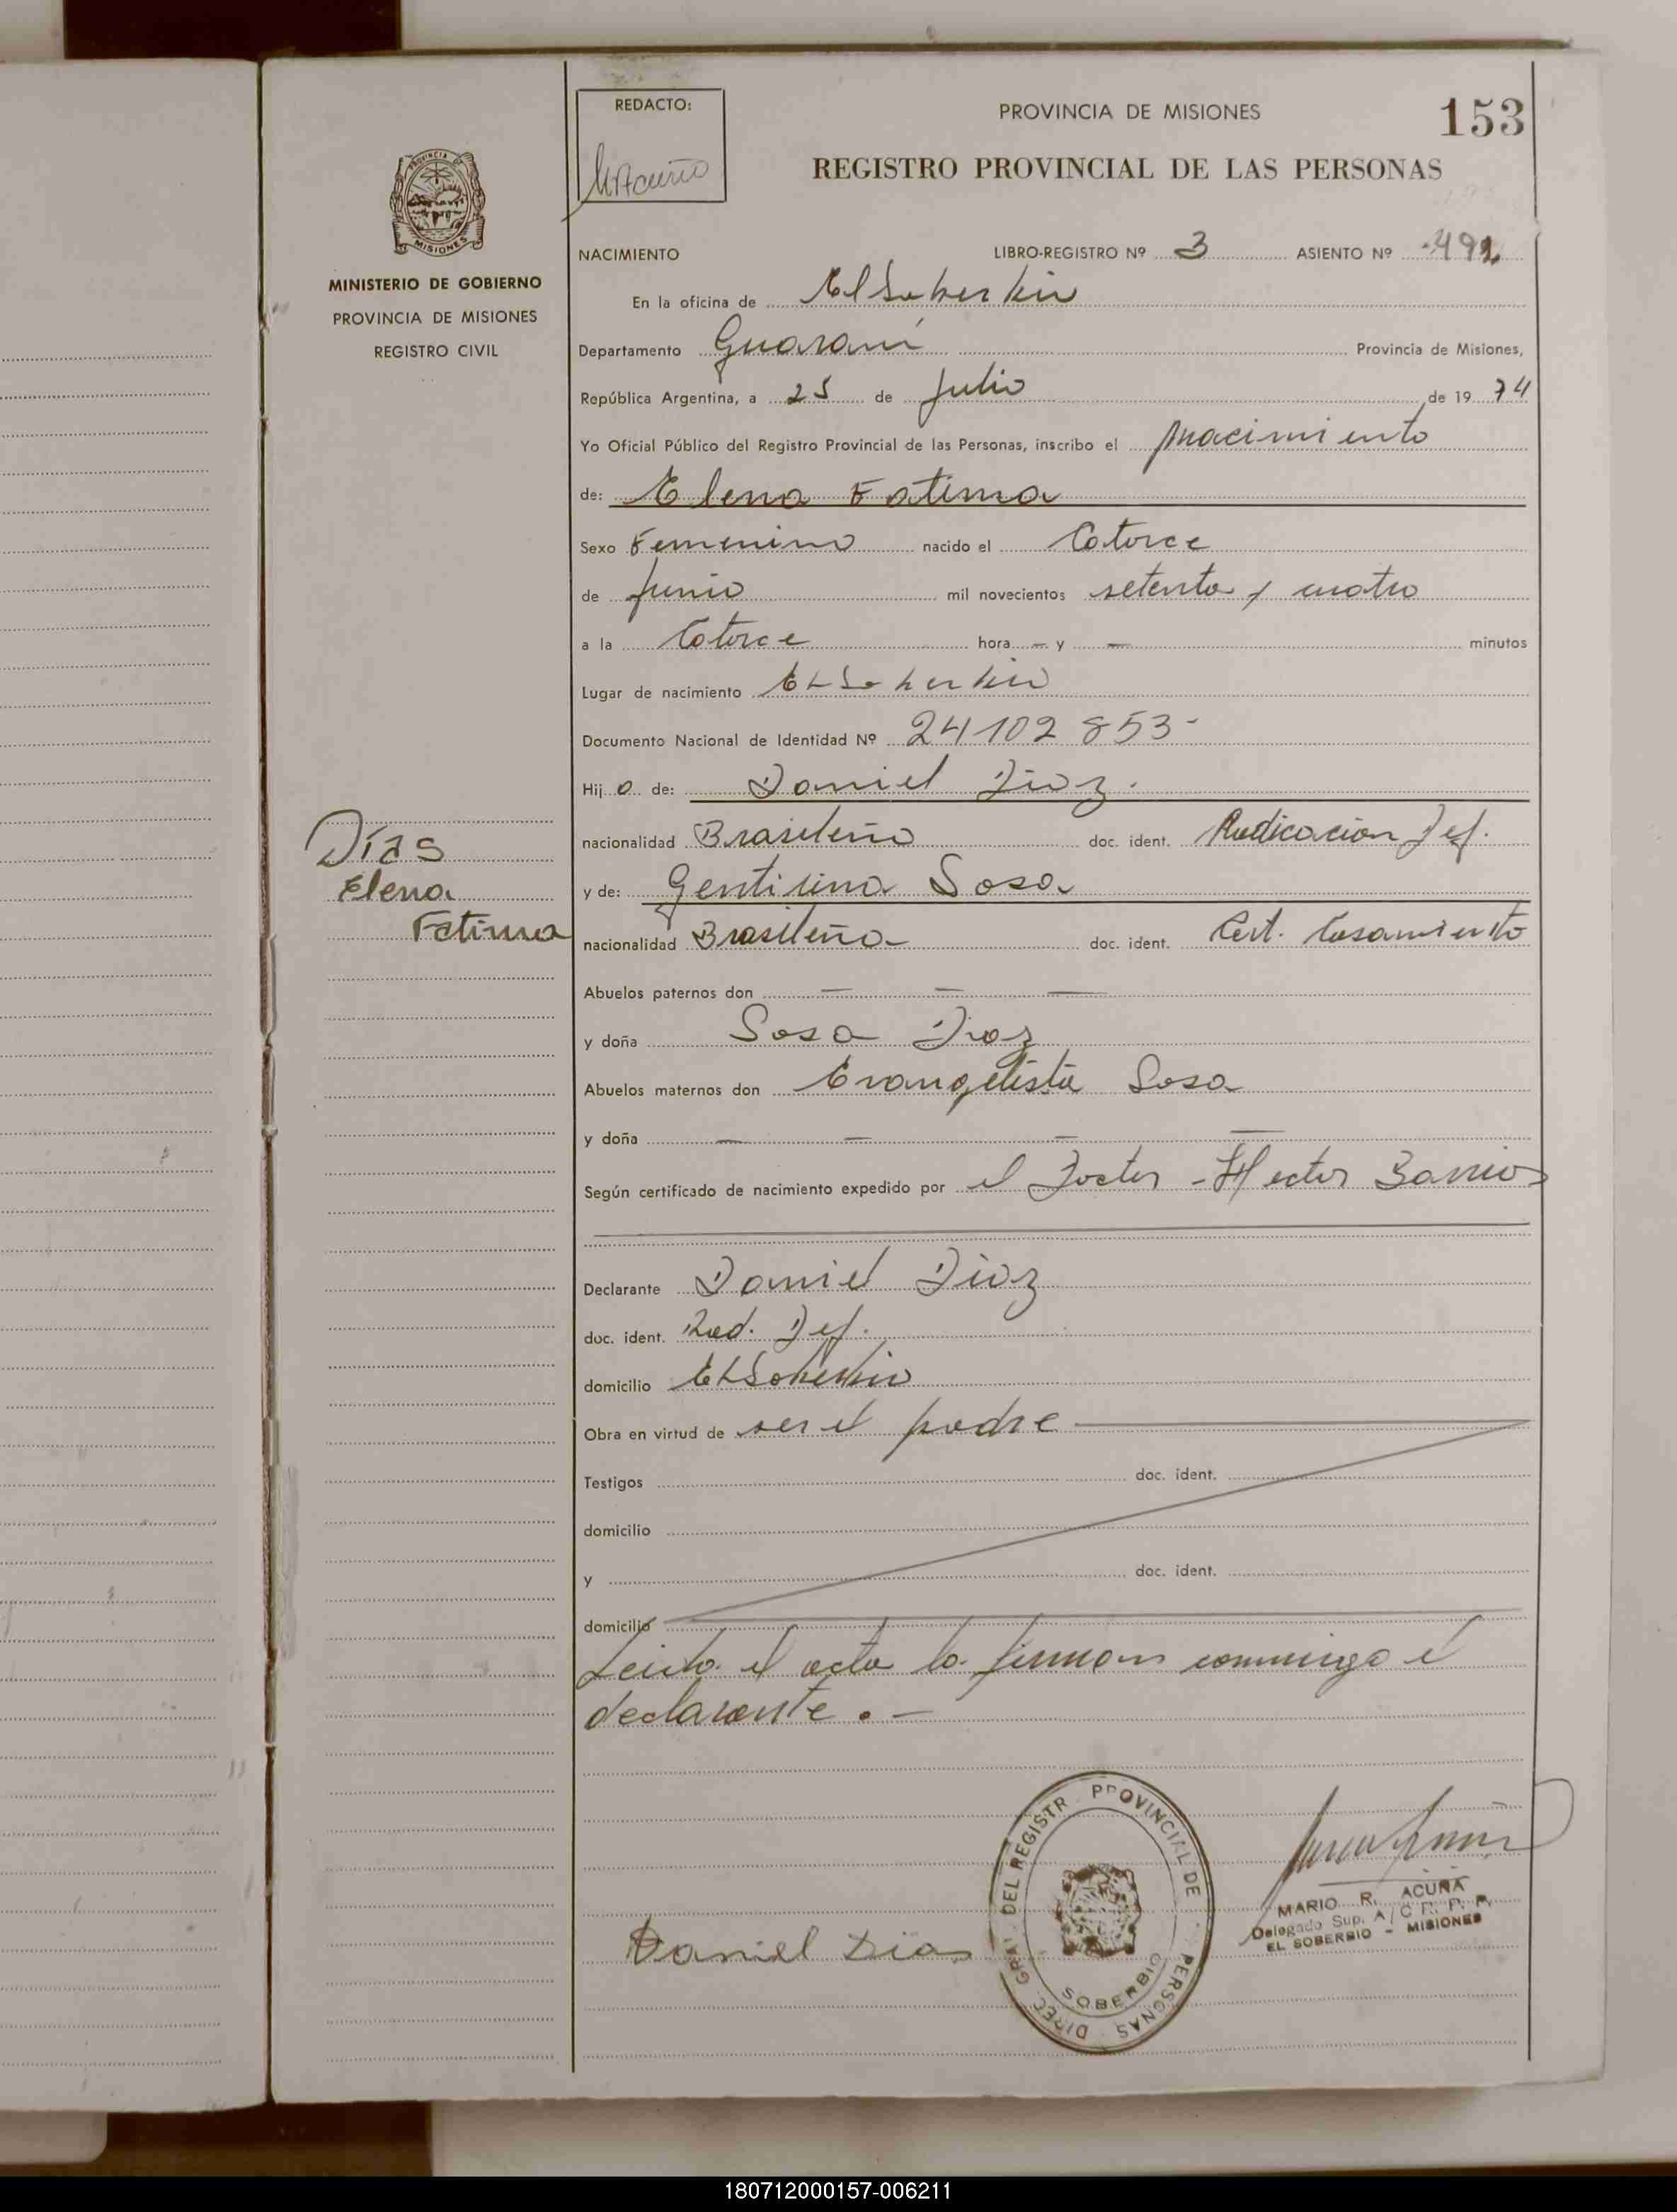 REDACTO:
PROVINCIA DE MISIONES
153
REGISTRO PROVINCIAL DE LAS PERSONAS
PROVINCIA DE
MISIONES
MINISTERIO DE GOBIERNO
PROVINCIA DE MISIONES
REGISTRO CIVIL
NACIMIENTO LIBRO-REGISTRO Nº 3 ASIENTO Nº 492
En la oficina de El Soberbio
Departamento Guaraní Provincia de Misiones,
República Argentina, a 25 de Julio de 1974
Yo Oficial Público del Registro Provincial de las Personas, inscribo el nacimiento
de: Elena Fatima
Sexo Femenino nacido el Catorce
de Junio mil novecientos setenta y cuatro
a la Catorce hora — y — minutos
Lugar de nacimiento El Soberbio
Documento Nacional de Identidad Nº 24102853-
Hij a de: Daniel Diaz.
nacionalidad Brasileño doc. ident. Radicacion Def.
y de: Gentilina Sosa
nacionalidad Brasileña doc. ident. Cert. Casamiento
Días
Elena
Fatima
Abuelos paternos don — — —
y doña Sosa Diaz
Abuelos maternos don Evangelista Sosa
y doña — — — —
Según certificado de nacimiento expedido por el Doctor - Hector Barrios
Declarante Daniel Diaz
doc. ident. Rad. Def.
domicilio El Soberbio
Obra en virtud de ser el padre
Testigos doc. ident.
domicilio
y doc. ident.
domicilio
Leida el acta la firman conmigo el
declarante. —
Daniel Dias
DIREC. GRAL. DEL REGISTR PROVINCIAL DE PERSONAS
SOBERBIO
MARIO R. ACUÑA
Delegado Sup. A/C R. P. P.
EL SOBERBIO - MISIONES
180712000157-006211